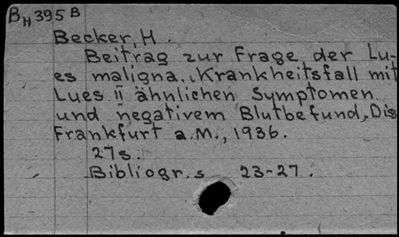 BH 395 B
Becker, H.
Beitrag zur Frage der Lu-
es maligna., Krankheitsfall mit
Lues II ähnlichen Symptomen
und negativem Blutbefund, Dis
Frankfurt a.M., 1936.
27s.
Bibliogr. s 23-27.